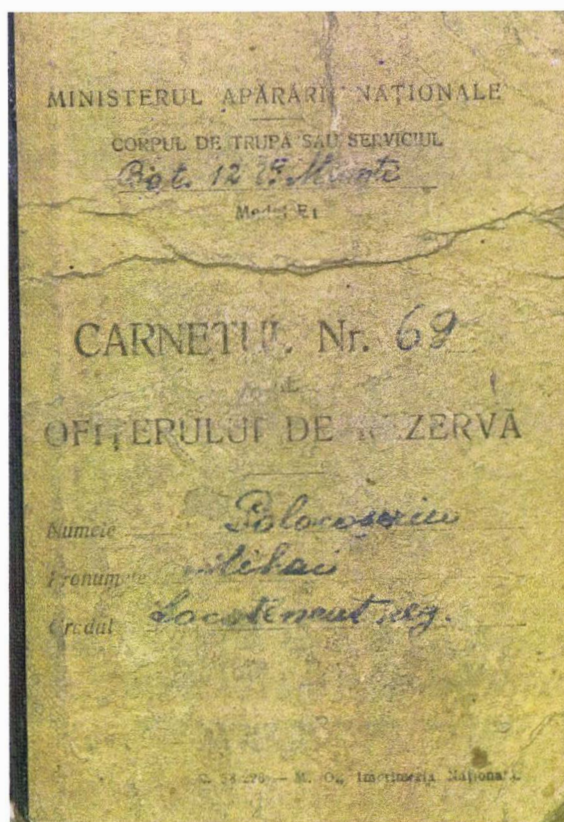 MINISTERUL APĂRĂRII NAȚIONALE
CORPUL DE TRUPĂ SAU SERVICIUL
Bat. 12
Model E1
CARNETUL Nr. 69
AL
OFIȚERULUI DE REZERVĂ
Numele
Pronumele Mihai
Gradul Locotenent rez.
C. 58.276. — M. O., Imprimeria Națională.